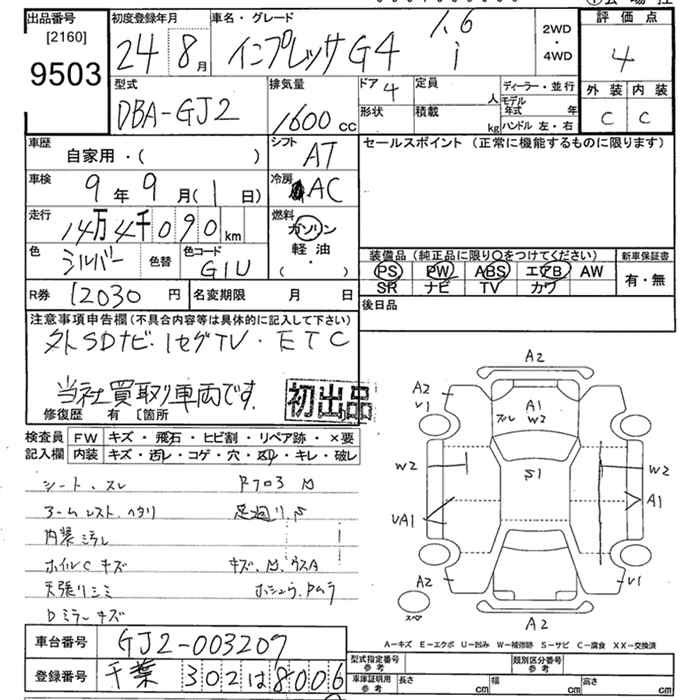 出品番号
[2160]
9503
初度登録年月
24 8月
車名・グレード
インプレッサG4 1.6 i
2WD
・
4WD
評価点
4
外装 内装
C C
型式
DBA-GJ2
排気量
1600 cc
ドア 4
形状
定員 人
積載 kg
ディーラー・並行
モデル
年式 年
ハンドル 左・右
車歴
自家用・( )
シフト AT
セールスポイント(正常に機能するものに限ります)
車検
9年 9月( 1日)
冷房 AC
走行
14万4千090 km
燃料
ガソリン
軽油
( ・ )
色
シルバー
色替
色コード
G1U
装備品(純正品に限り〇をつけてください)
PS PW ABS エアB AW
SR ナビ TV カワ
新車保証書
有・無
R券 12030 円
名変期限 月 日
後日品
注意事項申告欄(不具合内容等は具体的に記入して下さい)
外SDナビ・1セグTV・ETC
当社買取り車両です。
初出品
修復歴 有 〔箇所
検査員
記入欄
FW キズ・飛石・ヒビ割・リペア跡・×要
内装 キズ・汚レ・コゲ・穴・凹・キレ・破レ
シート、スレ
アームレスト、ヘタリ
足廻り、S
内装ミラレ
ホイルCキズ
天張りシミ
Dミラーキズ
A2
A2
V1
A1
W2
W2
S1
W2
A1
VA1
A2
V1
A2
スペア
A-キズ E-エクボ U-凹み W-補修跡 S-サビ C-腐食 XX-交換済
車台番号 GJ2-003207
登録番号 千葉 302 は 8006
型式指定番号
参考
類別区分番号
参考
車庫証明用
参考
長さ cm 幅 cm 高さ cm